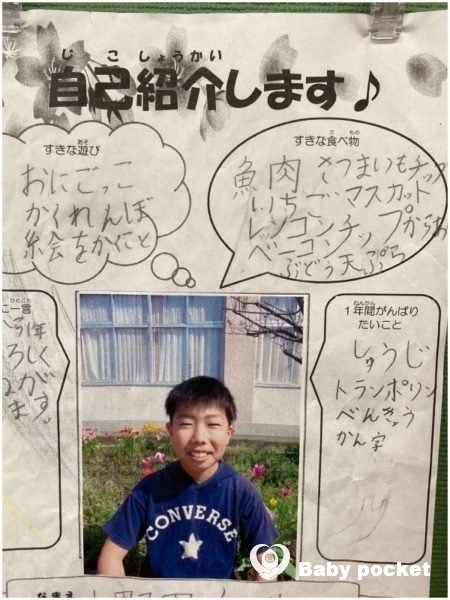 じこしょうかい
自己紹介します♪
あそ
すきな遊び
おにごっこ
かくれんぼ
絵をかくこと
た もの
すきな食べ物
魚 肉 さつまいもチップ
いちご マスカット
レンコンチップ からあ
ベーコン
ぶどう 天ぷら
ひとこと
一言
1年
ろしく
ねんかん
1年間がんばり
たいこと
しゅうじ
トランポリン
べんきょう
かん字
CONVERSE
なまえ
Baby pocket